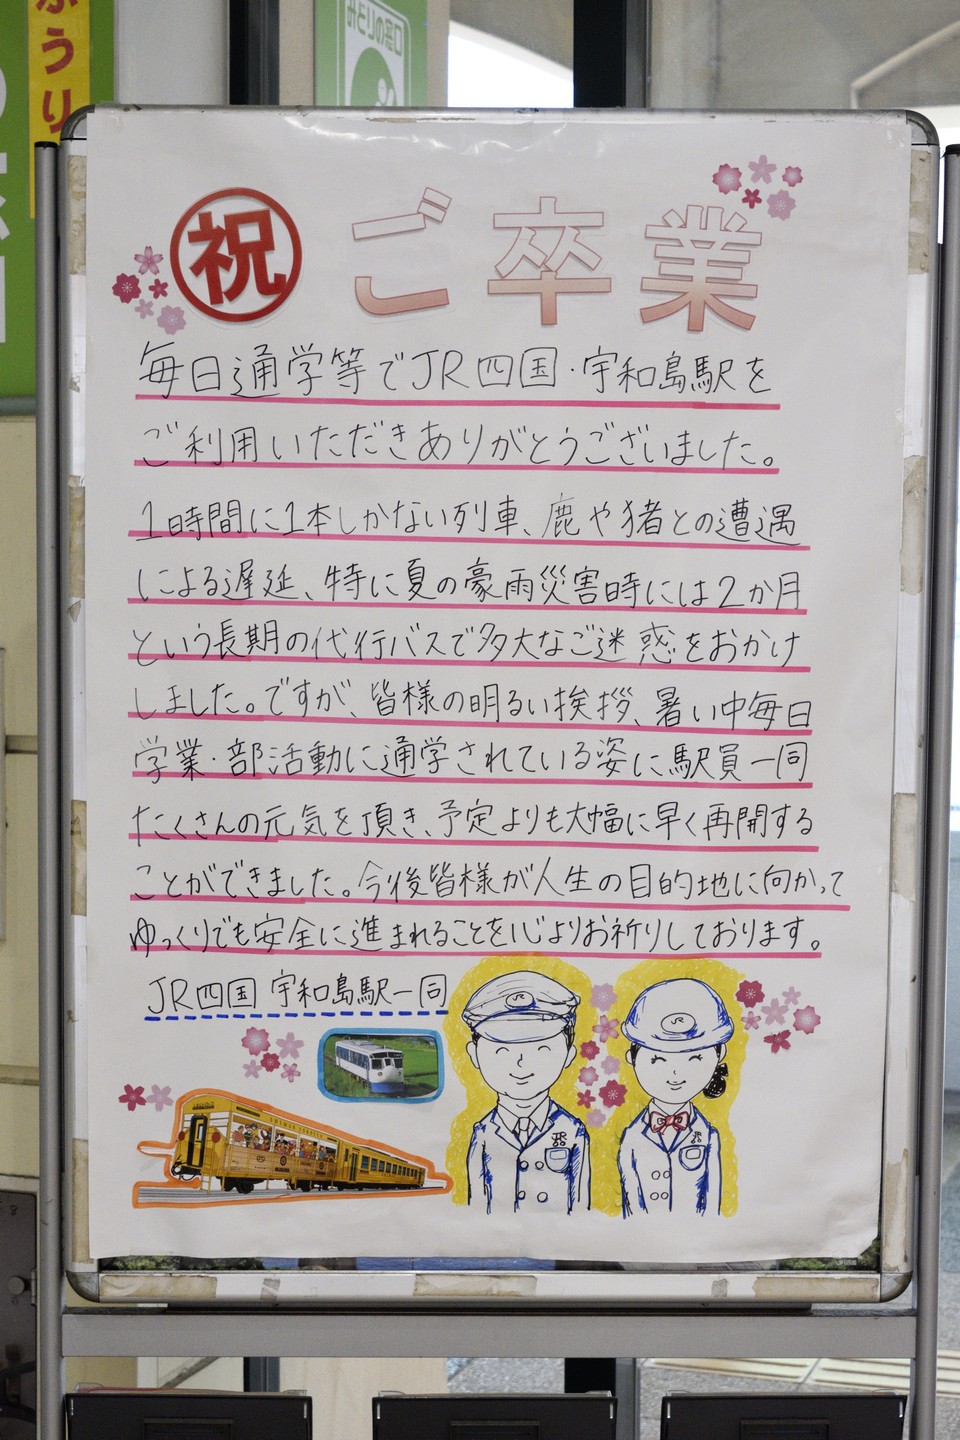 ふうり
みどりの窓口
祝 ご卒業
毎日通学等でJR四国・宇和島駅を
ご利用いただきありがとうございました。
1時間に1本しかない列車、鹿や猪との遭遇
による遅延、特に夏の豪雨災害時には2か月
という長期の代行バスで多大なご迷惑をおかけ
しました。ですが、皆様の明るい挨拶、暑い中毎日
学業・部活動に通学されている姿に駅員一同
たくさんの元気を頂き、予定よりも大幅に早く再開する
ことができました。今後皆様が人生の目的地に向かって
ゆっくりでも安全に進まれることを心よりお祈りしております。
JR四国 宇和島駅一同
JR
JR